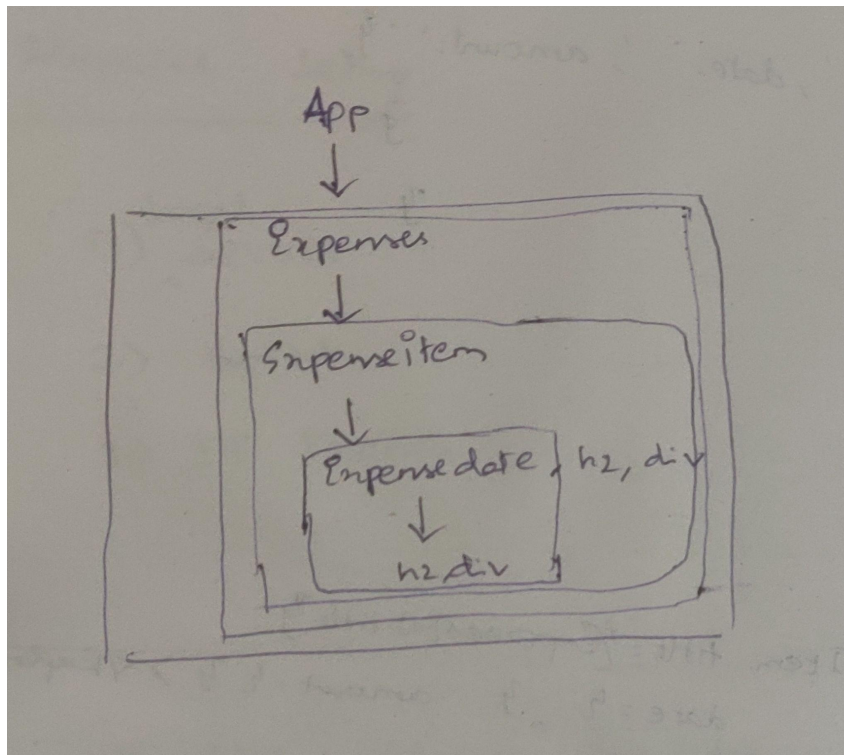 App
Expenses
Expenseitem
Expensedate, h2, div
h2, div